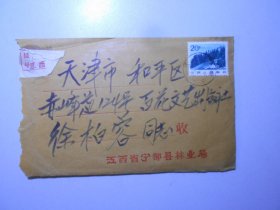 20分
天津市 和平区
赤峰道124号 百花文艺出版社
徐柏容 同志 收
江西省宁都县林业局